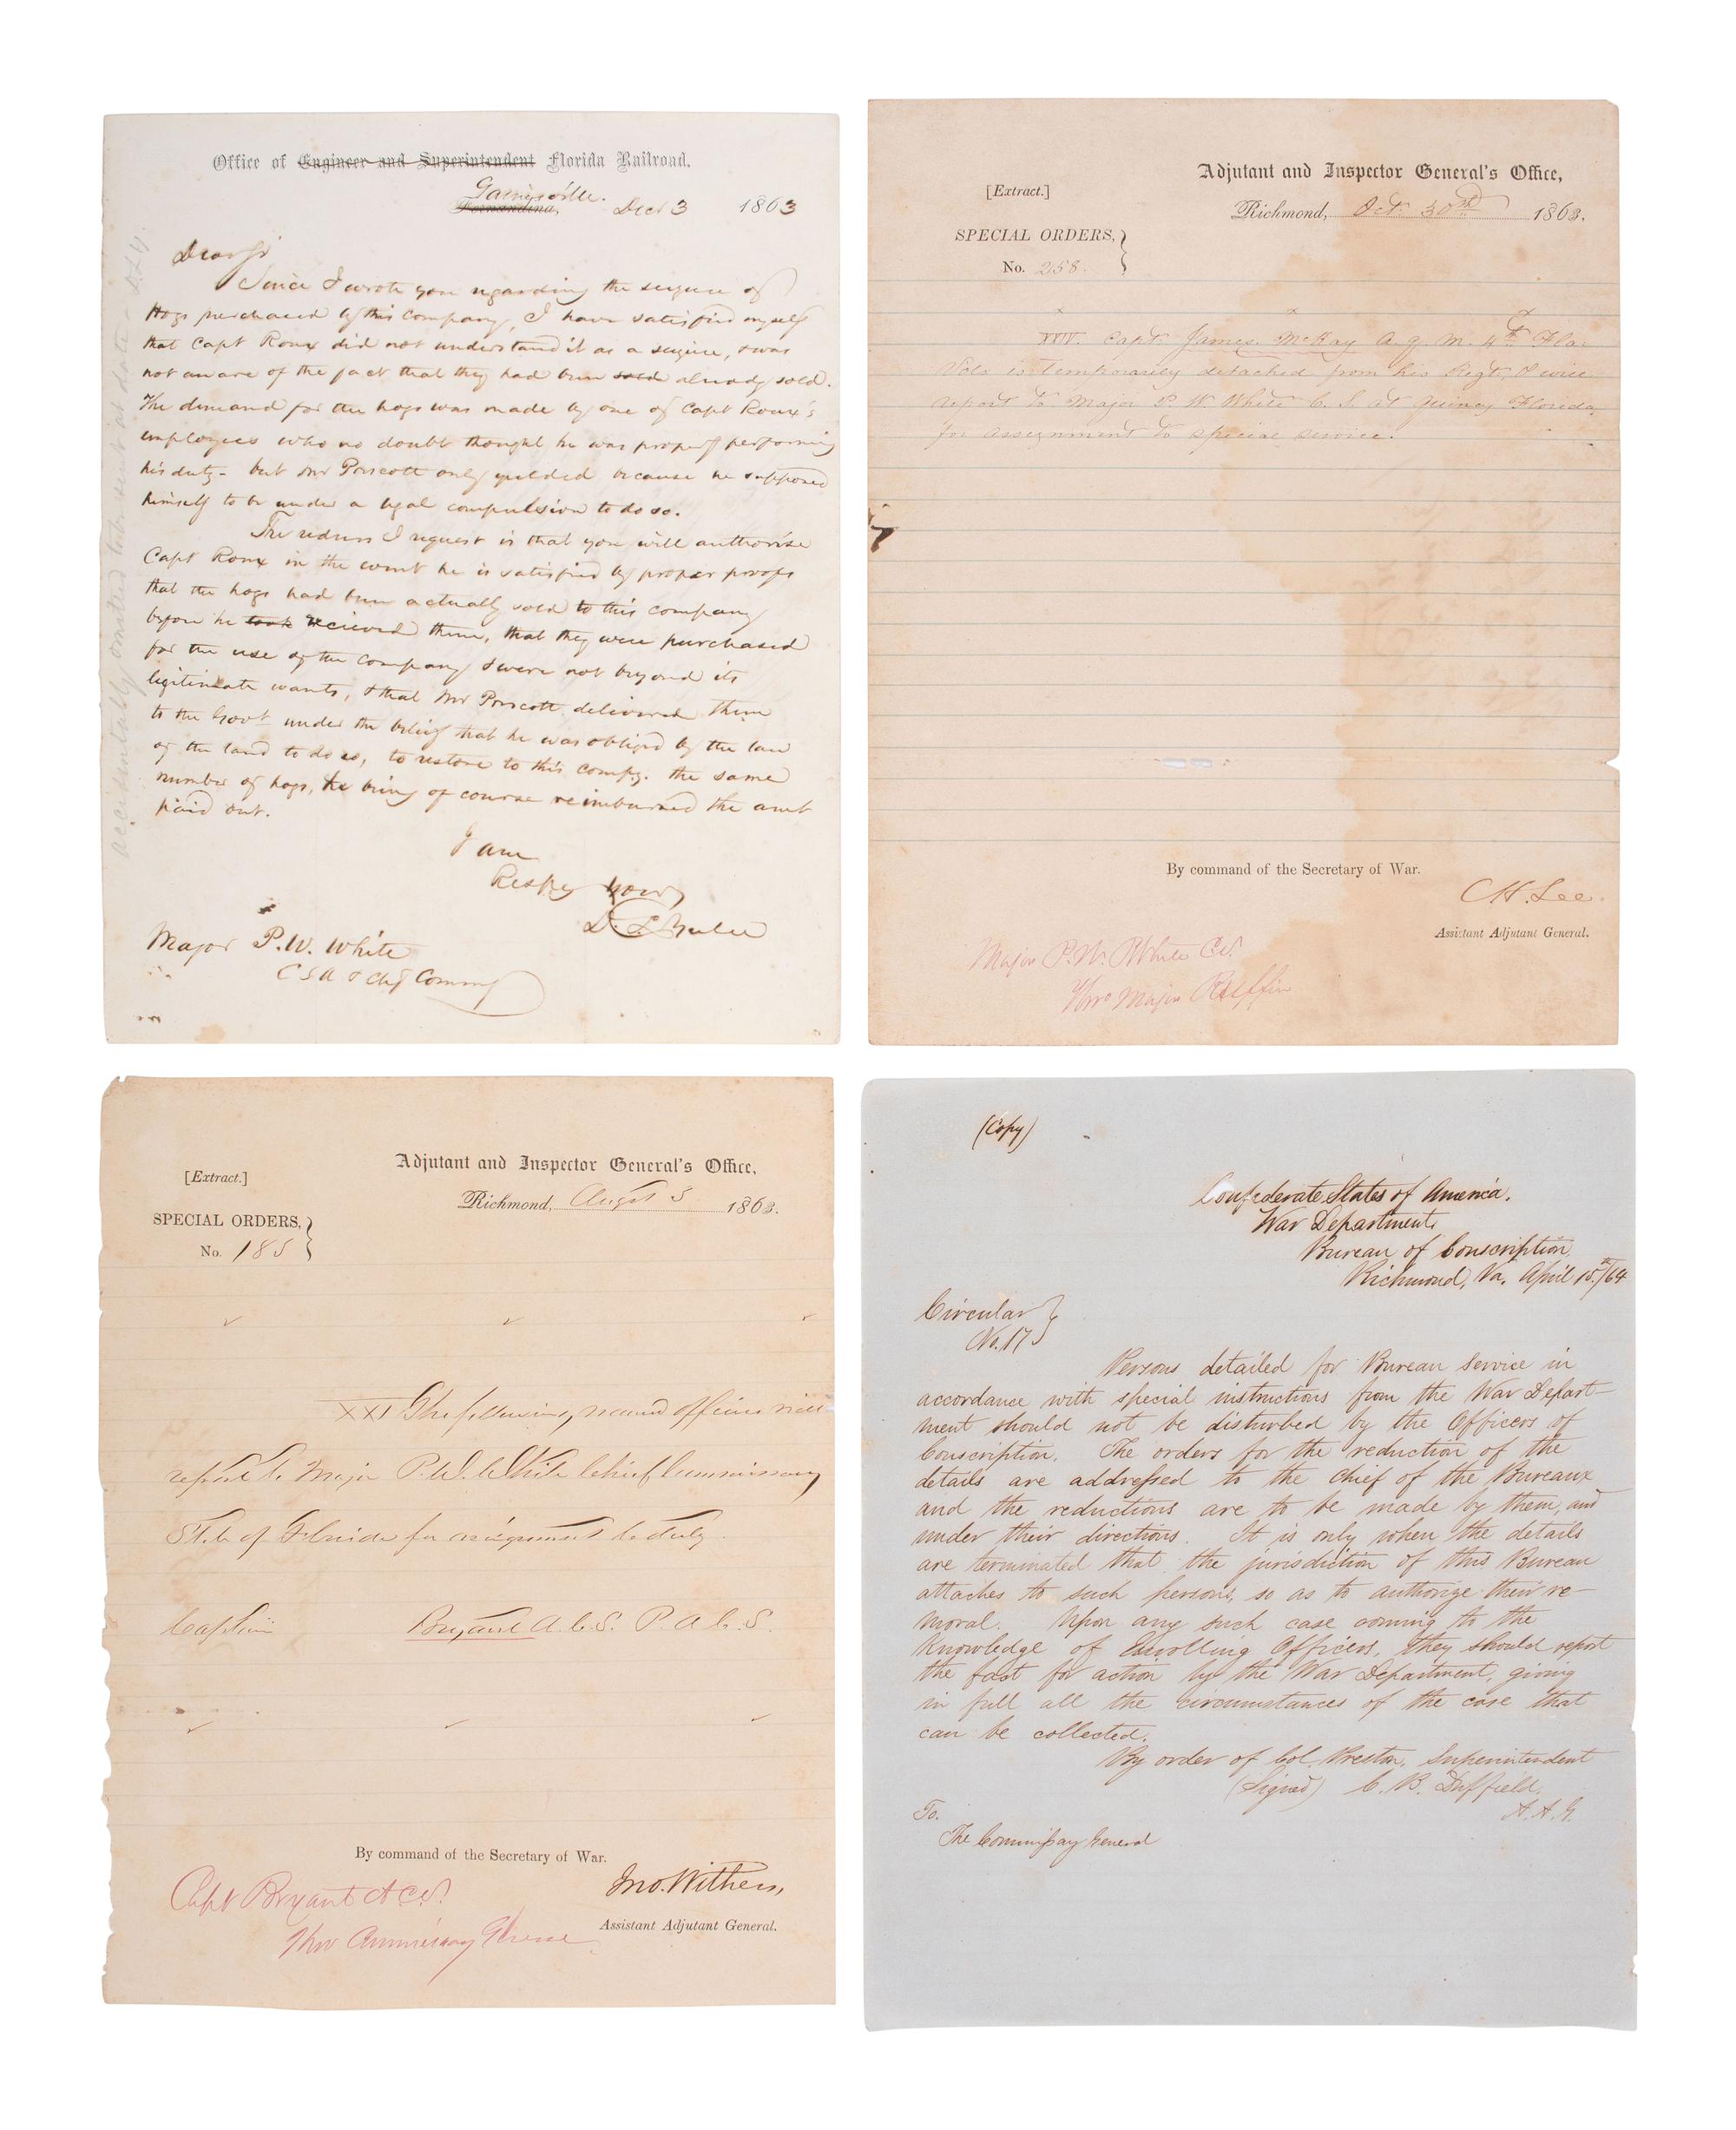 Office of Engineer and Superintendent Florida Railroad.
Gainesville.
Fernandina, Decr 3 1863
Dear Sir
Since I wrote you regarding the seizure of
Hogs purchased by this Company, I have satisfied myself
that Capt Roux did not understand it as a seizure, & was
not aware of the fact that they had been sold already sold.
The demand for the hogs was made by one of Capt Roux's
employees who no doubt thought he was properly performing
his duty - but Mr Prescott only yielded because he supposed
himself to be under a legal compulsion to do so.
The redress I request is that you will authorise
Capt Roux in the event he is satisfied by proper proofs
that the hogs had been actually sold to this company
before he took recieved them, that they were purchased
for the use of the Company & were not beyond its
legitimate wants, & that Mr Prescott delivered them
to the Govt under the belief that he was obliged by the law
of the land to do so, to restore to this Compy. the same
number of hogs, he being of course reimbursed the amt
paid out.
I am
Respy Yours
D. L. Yulee
Major P. W. White
C S A & Chf Commy
accidentally omitted to be sent at date
[Extract.]
Adjutant and Inspector General's Office,
Richmond, Oct. 30th 1863.
SPECIAL ORDERS,
No. 258.
x x x
XXIV. Capt. James McKay A. Q. M. 4th Fla.
Vols is temporarily detached from his Regt, & will
report to Major P. W. White C. S. at Quincy Florida,
for assignment to special service.
By command of the Secretary of War.
C. H. Lee.
Assistant Adjutant General.
Major P. W. White CS.
Thro Major Ruffin
[Extract.]
Adjutant and Inspector General's Office,
Richmond, August 5 1863.
SPECIAL ORDERS,
No. 185
XXI The following named officers will
report to Major P. W. White Chief Commissary
State of Florida for assignment to duty.
Captain Bryant A. C. S. P. A. C. S.
By command of the Secretary of War.
Jno. Withers,
Assistant Adjutant General.
Capt Bryant ACS.
Thro Commissary
(Copy)
Confederate States of America.
War Department,
Bureau of Conscription,
Richmond, Va. April 15th/64
Circular
No. 17
Persons detailed for Bureau Service in
accordance with special instructions from the War Depart-
ment should not be disturbed by the Officers of
Conscription. The orders for the reduction of the
details are addressed to the Chief of the Bureaux
and the reductions are to be made by them, and
under their directions. It is only when the details
are terminated that the jurisdiction of this Bureau
attaches to such persons, so as to authorize their re-
moval. Upon any such case coming to the
knowledge of Enrolling Officers, they should report
the fact for action by the War Department, giving
in full all the circumstances of the case that
can be collected.
By order of Col. Preston, Superintendent
(Signed) C. B. Duffield,
A. A. G.
To.
The Commissary General